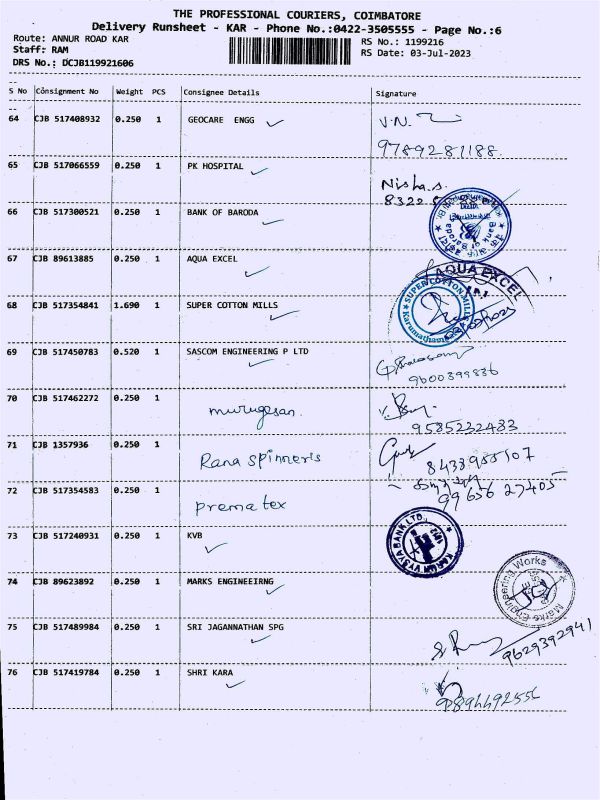 THE PROFESSIONAL COURIERS, COIMBATORE
Delivery Runsheet - KAR - Phone No.:0422-3505555 - Page No.:6
Route: ANNUR ROAD KAR RS No.: 1199216
Staff: RAM RS Date: 03-Jul-2023
DRS No.: DCJB119921606
S No Consignment No Weight PCS Consignee Details Signature
64 CJB 517408932 0.250 1 GEOCARE ENGG V.N.
9789281188
65 CJB 517066559 0.250 1 PK HOSPITAL
Nisha.s
8322
66 CJB 517300521 0.250 1 BANK OF BARODA
Bank of Baroda
67 CJB 89613885 0.250 1 AQUA EXCEL
AQUA EXCEL
68 CJB 517354841 1.690 1 SUPER COTTON MILLS
SUPER COTTON MILLS
69 CJB 517450783 0.520 1 SASCOM ENGINEERING P LTD
9600399836
70 CJB 517462272 0.250 1 murugesan.
9585232433
71 CJB 1357936 0.250 1 Rana Spinners
72 CJB 517354583 0.250 1 prema tex
99656 27405
73 CJB 517240931 0.250 1 KVB
KARUR VYSYA BANK LTD.
74 CJB 89623892 0.250 1 MARKS ENGINEEIRNG
Marks Engineering Works
75 CJB 517489984 0.250 1 SRI JAGANNATHAN SPG
9629392941
76 CJB 517419784 0.250 1 SHRI KARA